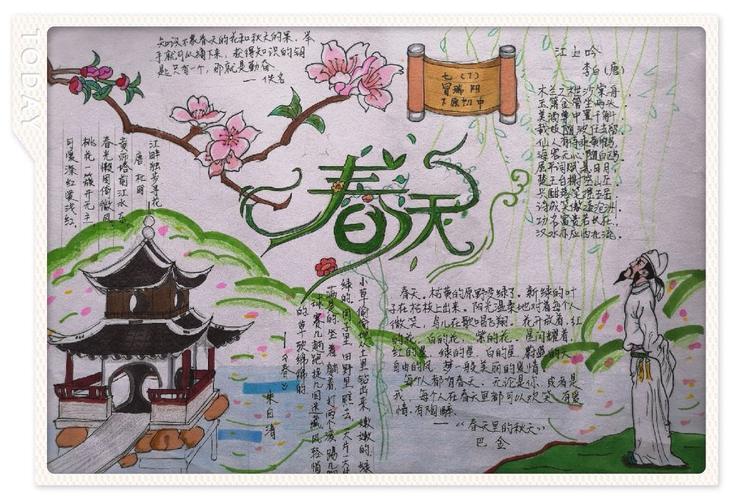 TODAY
知识不象春天的花和秋天的果，举
手就可以摘下来，获得知识的钥
匙只有一个，那就是勤奋
——佚名
七（7）
冒瑞阳
江上吟
李白（唐）
木兰之枻沙棠舟，
玉箫金管坐两头。
美酒尊中置千斛，
仙人有待乘黄鹤，
海客无心随白鸥。
屈平词赋悬日月，
楚王台榭空山丘。
兴酣落笔摇五岳，
诗成笑傲凌沧洲。
功名富贵若长在，
汉水亦应西北流。
江畔独步寻花
唐 杜甫
黄师塔前江水东
春光懒困倚微风
桃花一簇开无主
可爱深红爱浅红
春天
小草偷偷地从土里钻出来，嫩嫩的，绿
绿的。园子里，田野里，瞧去，一大片一大片
满是的。坐着，躺着，打两个滚，踢几脚
球，赛几趟跑，捉几回迷藏。风轻悄悄
的，草软绵绵的
——《春》
朱自清
春天，枯黄的原野变绿了。新绿的叶
子在枯枝上出来。阳光温柔地对着每个人
微笑，鸟儿在歌唱飞翔。花开放着，红
的花，白的花，紫的花。星闪耀着，
红的星，绿的星，白的星。蔚蓝的天
自由的风，梦一般美丽的爱情
每个人都有春天。无论是你，或者是
我，每个人在春天里都可以欢笑，有爱
情，有陶醉
——《春天里的秋天》
巴金